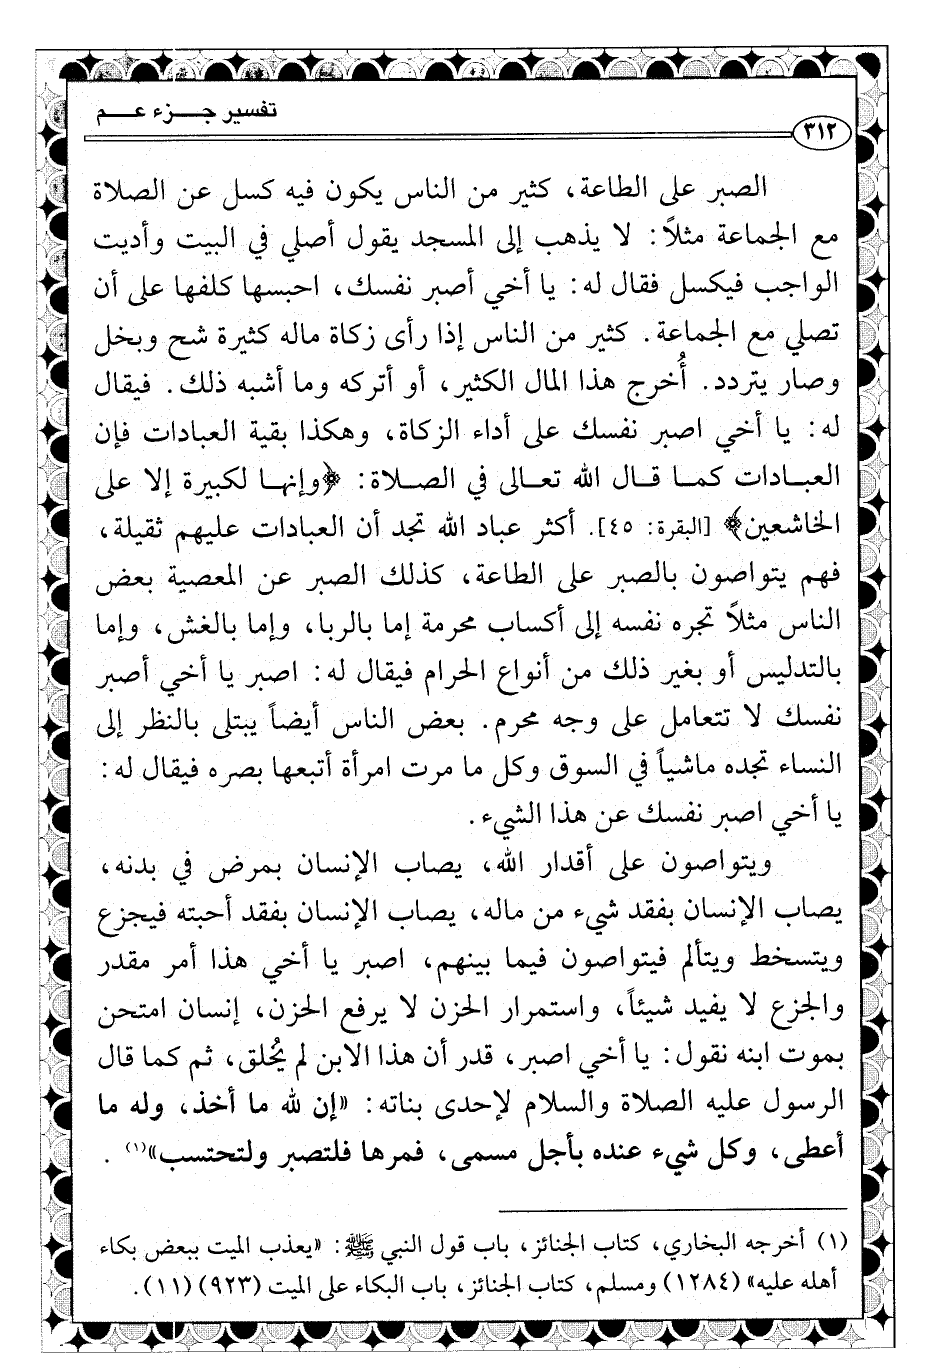 تفسير جزء عم
٣١٢
الصبر على الطاعة، كثير من الناس يكون فيه كسل عن الصلاة
مع الجماعة مثلاً: لا يذهب إلى المسجد يقول أصلي في البيت وأديت
الواجب فيكسل فقال له: يا أخي أصبر نفسك، احبسها كلفها على أن
تصلي مع الجماعة. كثير من الناس إذا رأى زكاة ماله كثيرة شح وبخل
وصار يتردد. أُخرج هذا المال الكثير، أو أتركه وما أشبه ذلك. فيقال
له: يا أخي اصبر نفسك على أداء الزكاة، وهكذا بقية العبادات فإن
العبادات كما قال الله تعالى في الصلاة: ﴿وإنها لكبيرة إلا على
الخاشعين﴾ [البقرة: ٤٥]. أكثر عباد الله تجد أن العبادات عليهم ثقيلة،
فهم يتواصون بالصبر على الطاعة، كذلك الصبر عن المعصية بعض
الناس مثلاً تجره نفسه إلى أكساب محرمة إما بالربا، وإما بالغش، وإما
بالتدليس أو بغير ذلك من أنواع الحرام فيقال له: اصبر يا أخي أصبر
نفسك لا تتعامل على وجه محرم. بعض الناس أيضاً يبتلى بالنظر إلى
النساء تجده ماشياً في السوق وكل ما مرت امرأة أتبعها بصره فيقال له:
يا أخي اصبر نفسك عن هذا الشيء.
ويتواصون على أقدار الله، يصاب الإنسان بمرض في بدنه،
يصاب الإنسان بفقد شيء من ماله، يصاب الإنسان بفقد أحبته فيجزع
ويتسخط ويتألم فيتواصون فيما بينهم، اصبر يا أخي هذا أمر مقدر
والجزع لا يفيد شيئاً، واستمرار الحزن لا يرفع الحزن، إنسان امتحن
بموت ابنه نقول: يا أخي اصبر، قدر أن هذا الابن لم يُخلق، ثم كما قال
الرسول عليه الصلاة والسلام لإحدى بناته: «إن لله ما أخذ، وله ما
أعطى، وكل شيء عنده بأجل مسمى، فمرها فلتصبر ولتحتسب»(١).
(١) أخرجه البخاري، كتاب الجنائز، باب قول النبي ﷺ: «يعذب الميت ببعض بكاء
أهله عليه» (١٢٨٤) ومسلم، كتاب الجنائز، باب البكاء على الميت (٩٢٣) (١١).